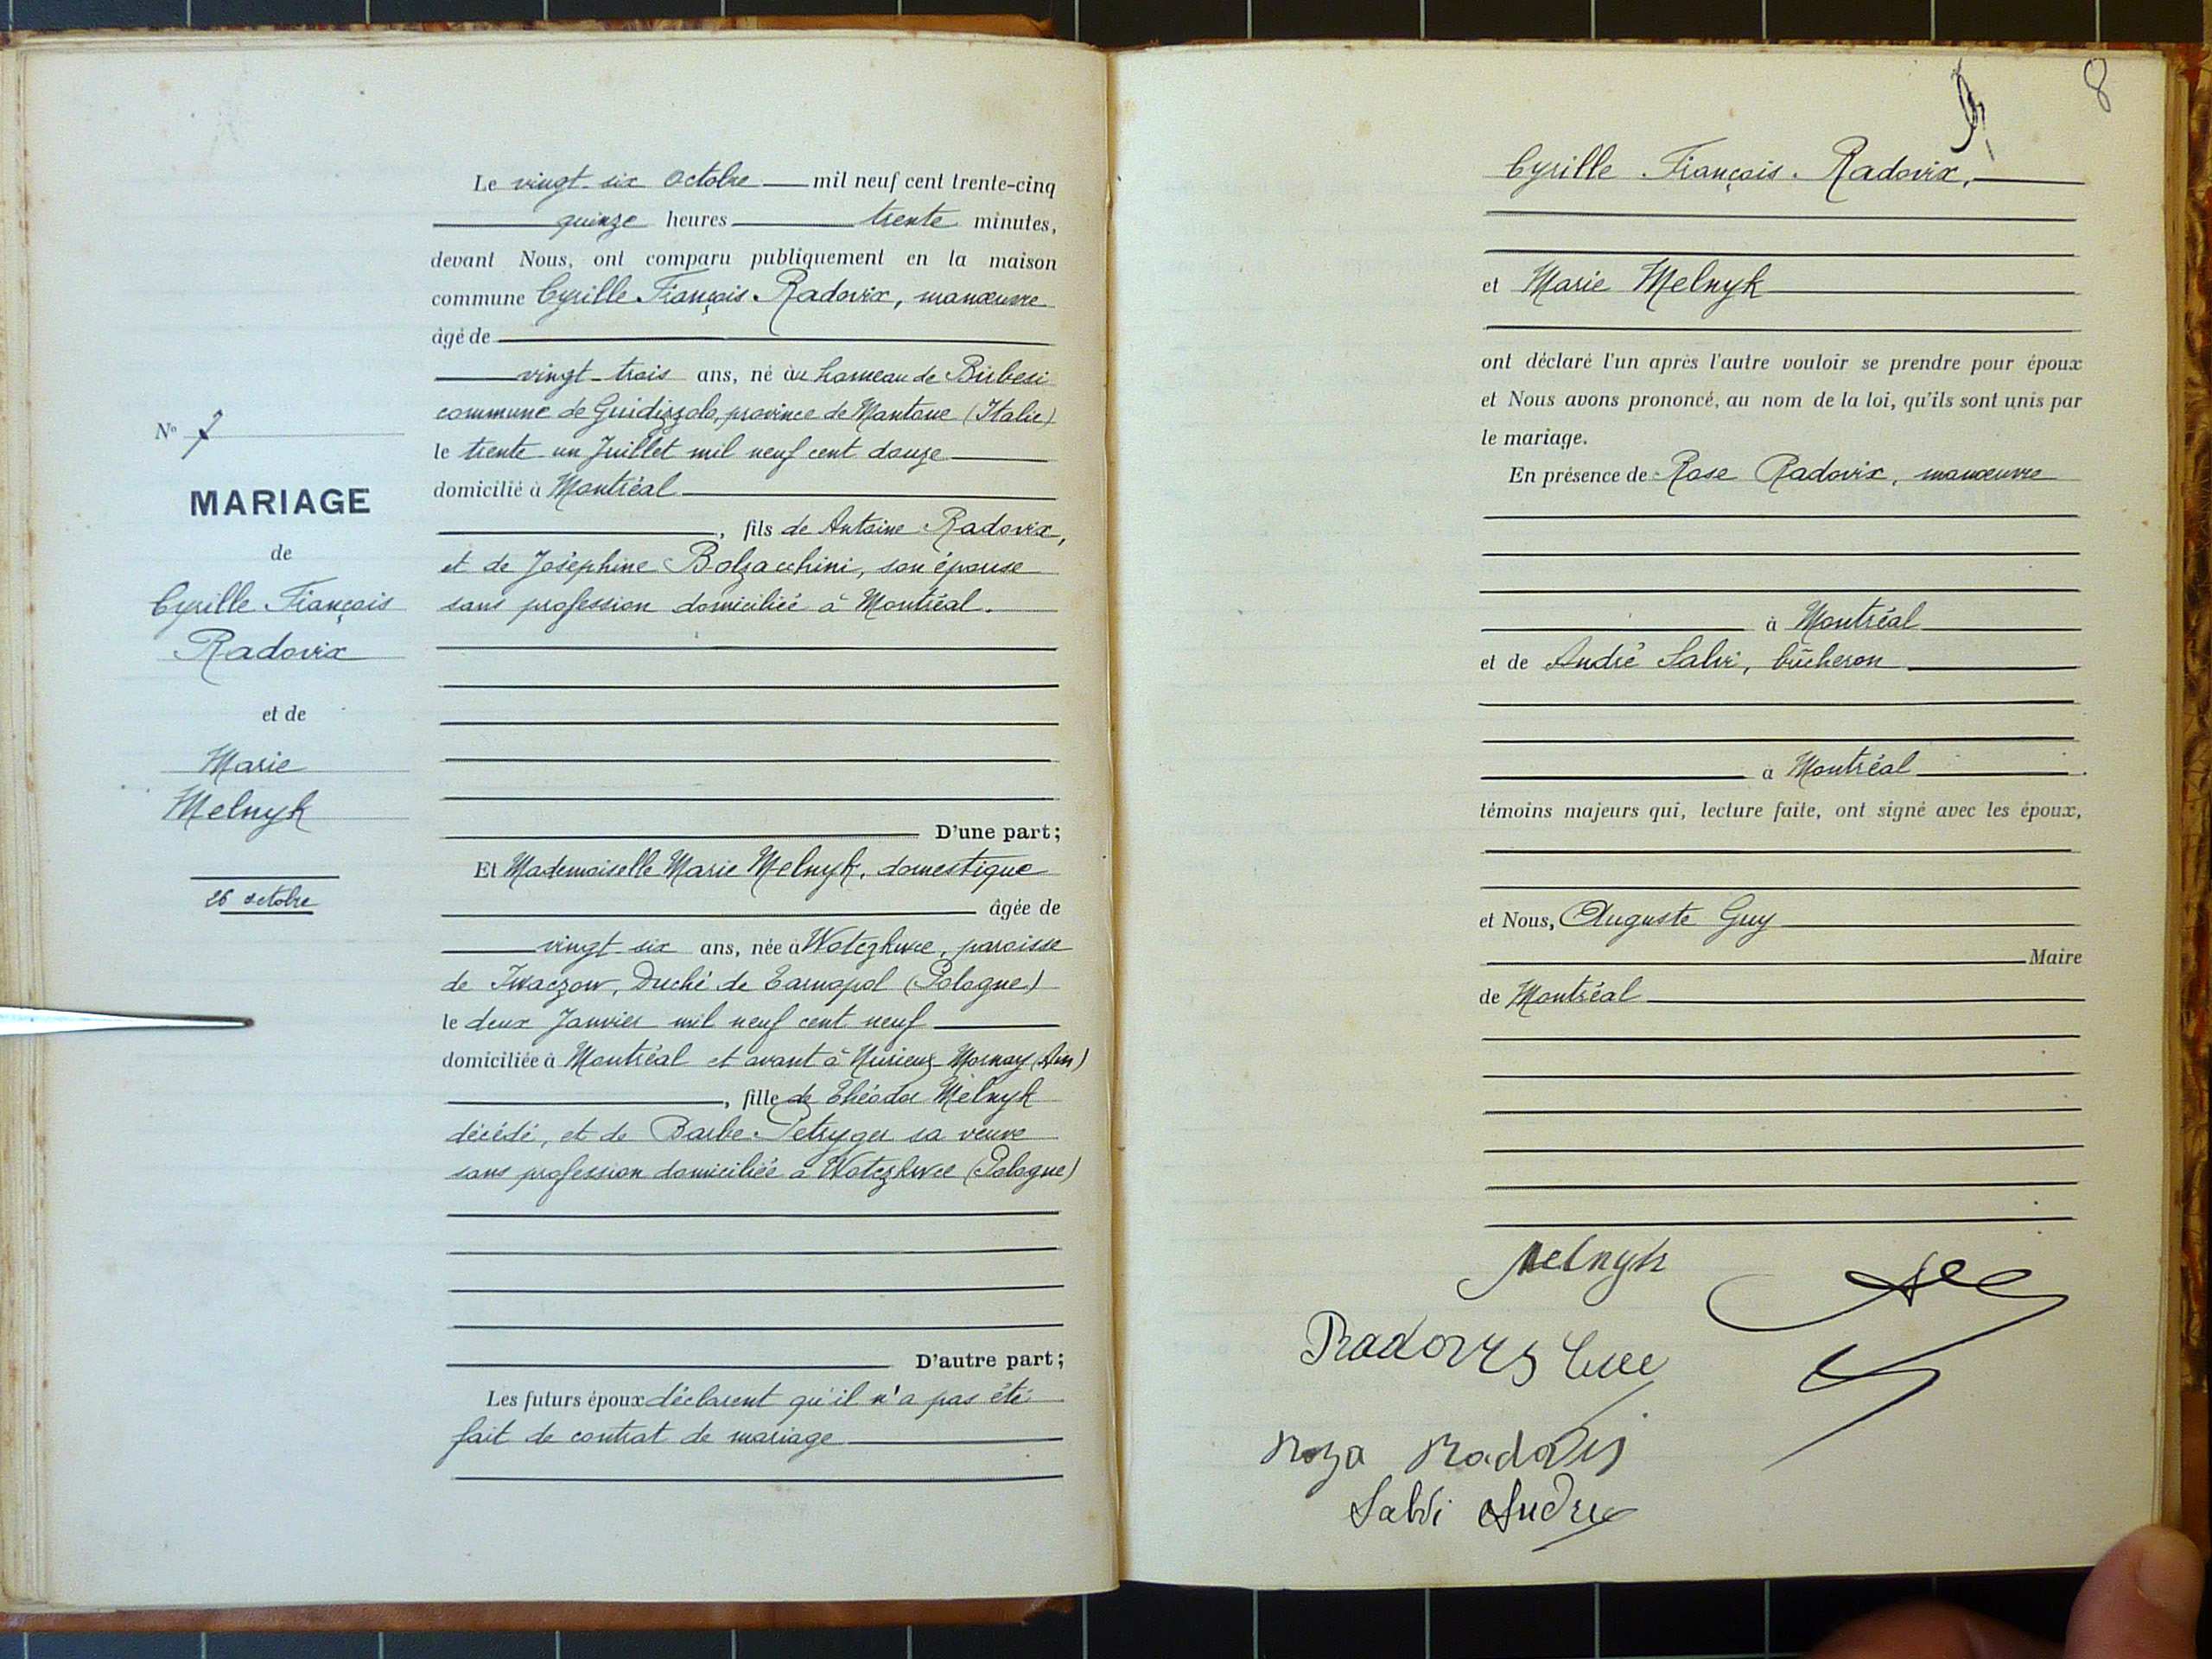 Nº 7
MARIAGE
de
Cyrille François
Radovix
et de
Marie
Melnyk
26 octobre
Le vingt six octobre mil neuf cent trente-cinq
quinze heures trente minutes,
devant Nous, ont comparu publiquement en la maison
commune Cyrille François Radovix, manœuvre
âgé de
vingt-trois ans, né au hameau de Birbesi
commune de Guidizzolo, province de Mantoue (Italie)
le trente un Juillet mil neuf cent douze
domicilié à Montréal
, fils de Antoine Radovix,
et de Joséphine Bolzacchini, son épouse
sans profession domiciliée à Montréal.
D'une part;
Et Mademoiselle Marie Melnyk, domestique
âgée de
vingt six ans, née à Wotczkwce, paroisse
de Iwaczow, Duché de Tarnopol (Pologne)
le deux Janvier mil neuf cent neuf
domiciliée à Montréal et avant à Nurieux-Mornay (Ain)
, fille de Théodor Melnyk
décédé, et de Barbe Petryger sa veuve
sans profession domiciliée à Wotczkwce (Pologne)
D'autre part;
Les futurs époux déclarent qu'il n'a pas été
fait de contrat de mariage
8
Cyrille François Radovix,
et Marie Melnyk
ont déclaré l'un après l'autre vouloir se prendre pour époux
et Nous avons prononcé, au nom de la loi, qu'ils sont unis par
le mariage.
En présence de Rose Radovix, manœuvre
à Montréal
et de André Salvi, bûcheron
à Montréal.
témoins majeurs qui, lecture faite, ont signé avec les époux,
et Nous, Auguste Guy
Maire
de Montréal
Melnyk
Radovis
Roza Radovis
Salvi André